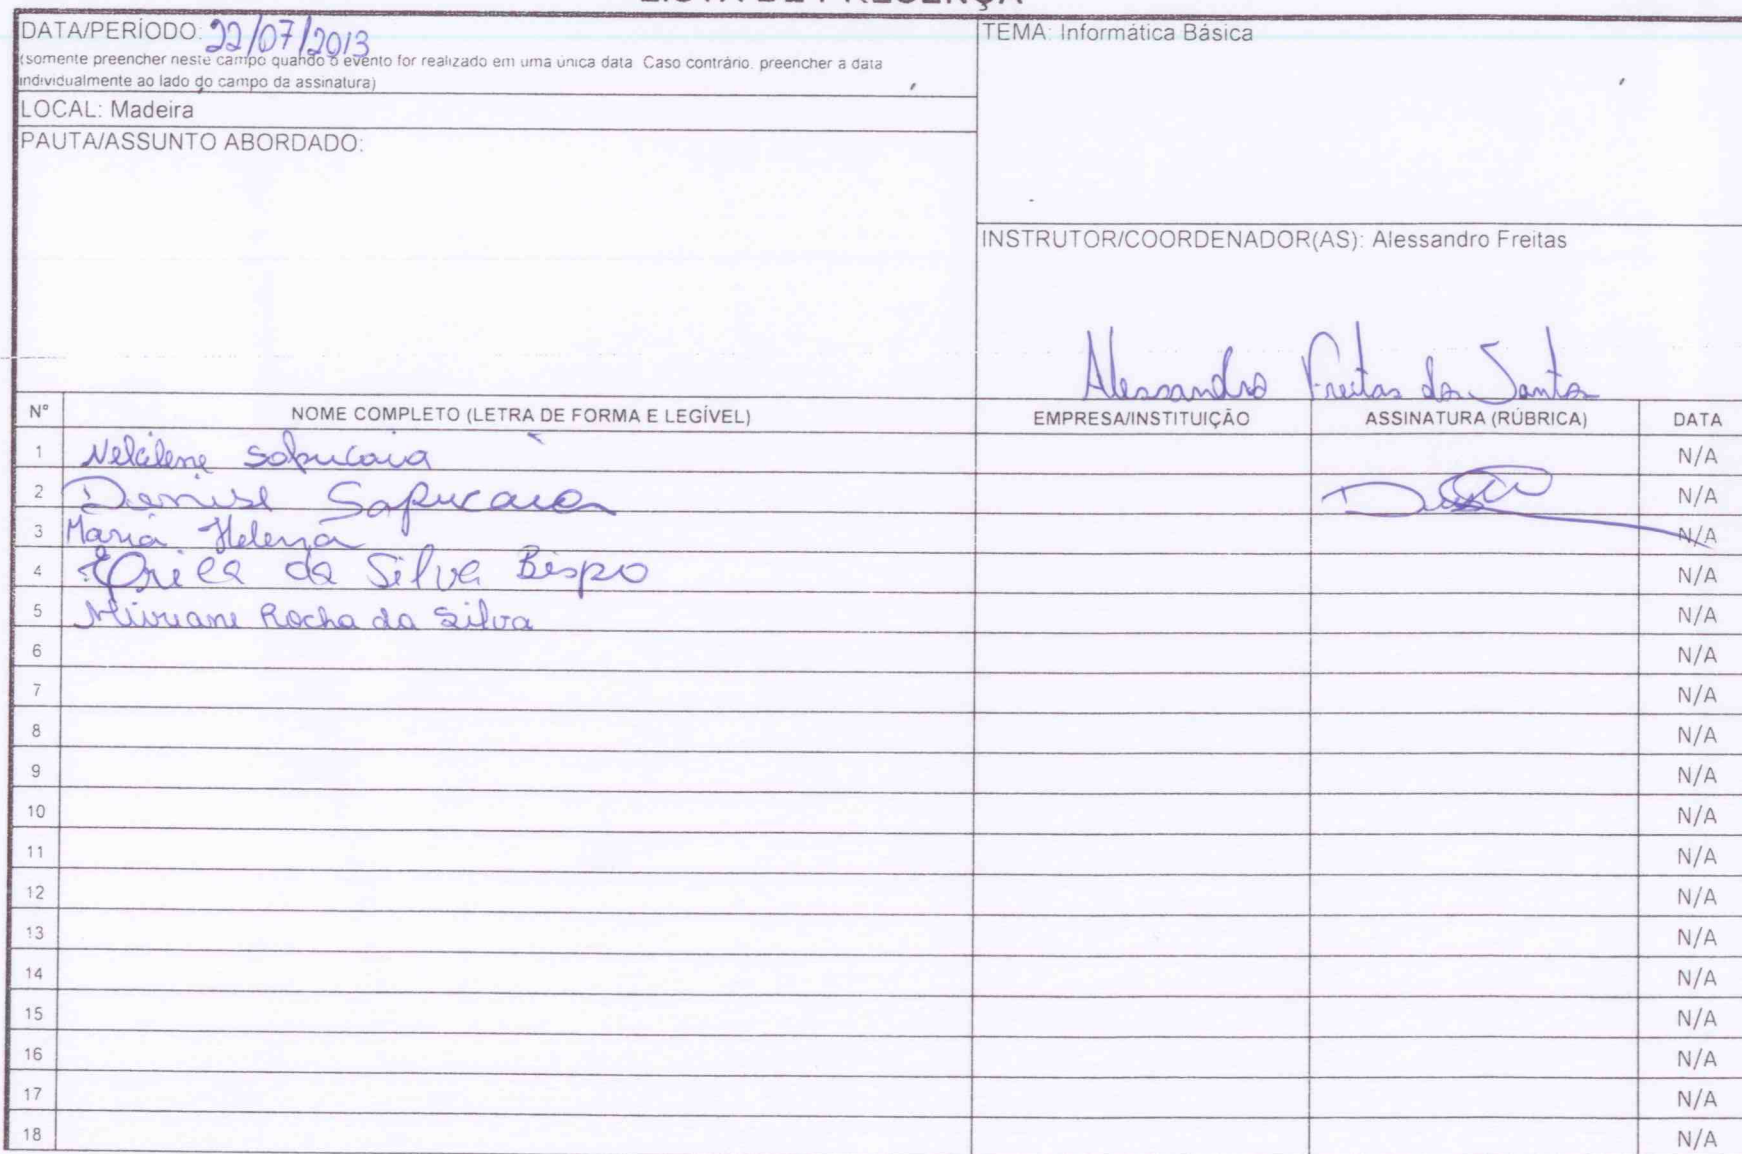 LISTA DE PRESENÇA
DATA/PERÍODO: 22/07/2013
(somente preencher neste campo quando o evento for realizado em uma única data. Caso contrário, preencher a data
individualmente ao lado do campo da assinatura)
TEMA: Informática Básica
LOCAL: Madeira
PAUTA/ASSUNTO ABORDADO:
INSTRUTOR/COORDENADOR(AS): Alessandro Freitas
Alessandro Freitas dos Santos
N° NOME COMPLETO (LETRA DE FORMA E LEGÍVEL) EMPRESA/INSTITUIÇÃO ASSINATURA (RÚBRICA) DATA
1 Sapucaia N/A
2 Denise Sapucaia N/A
3 Maria Helena N/A
4 Erica da Silva Bispo N/A
5 Rocha da Silva N/A
6 N/A
7 N/A
8 N/A
9 N/A
10 N/A
11 N/A
12 N/A
13 N/A
14 N/A
15 N/A
16 N/A
17 N/A
18 N/A